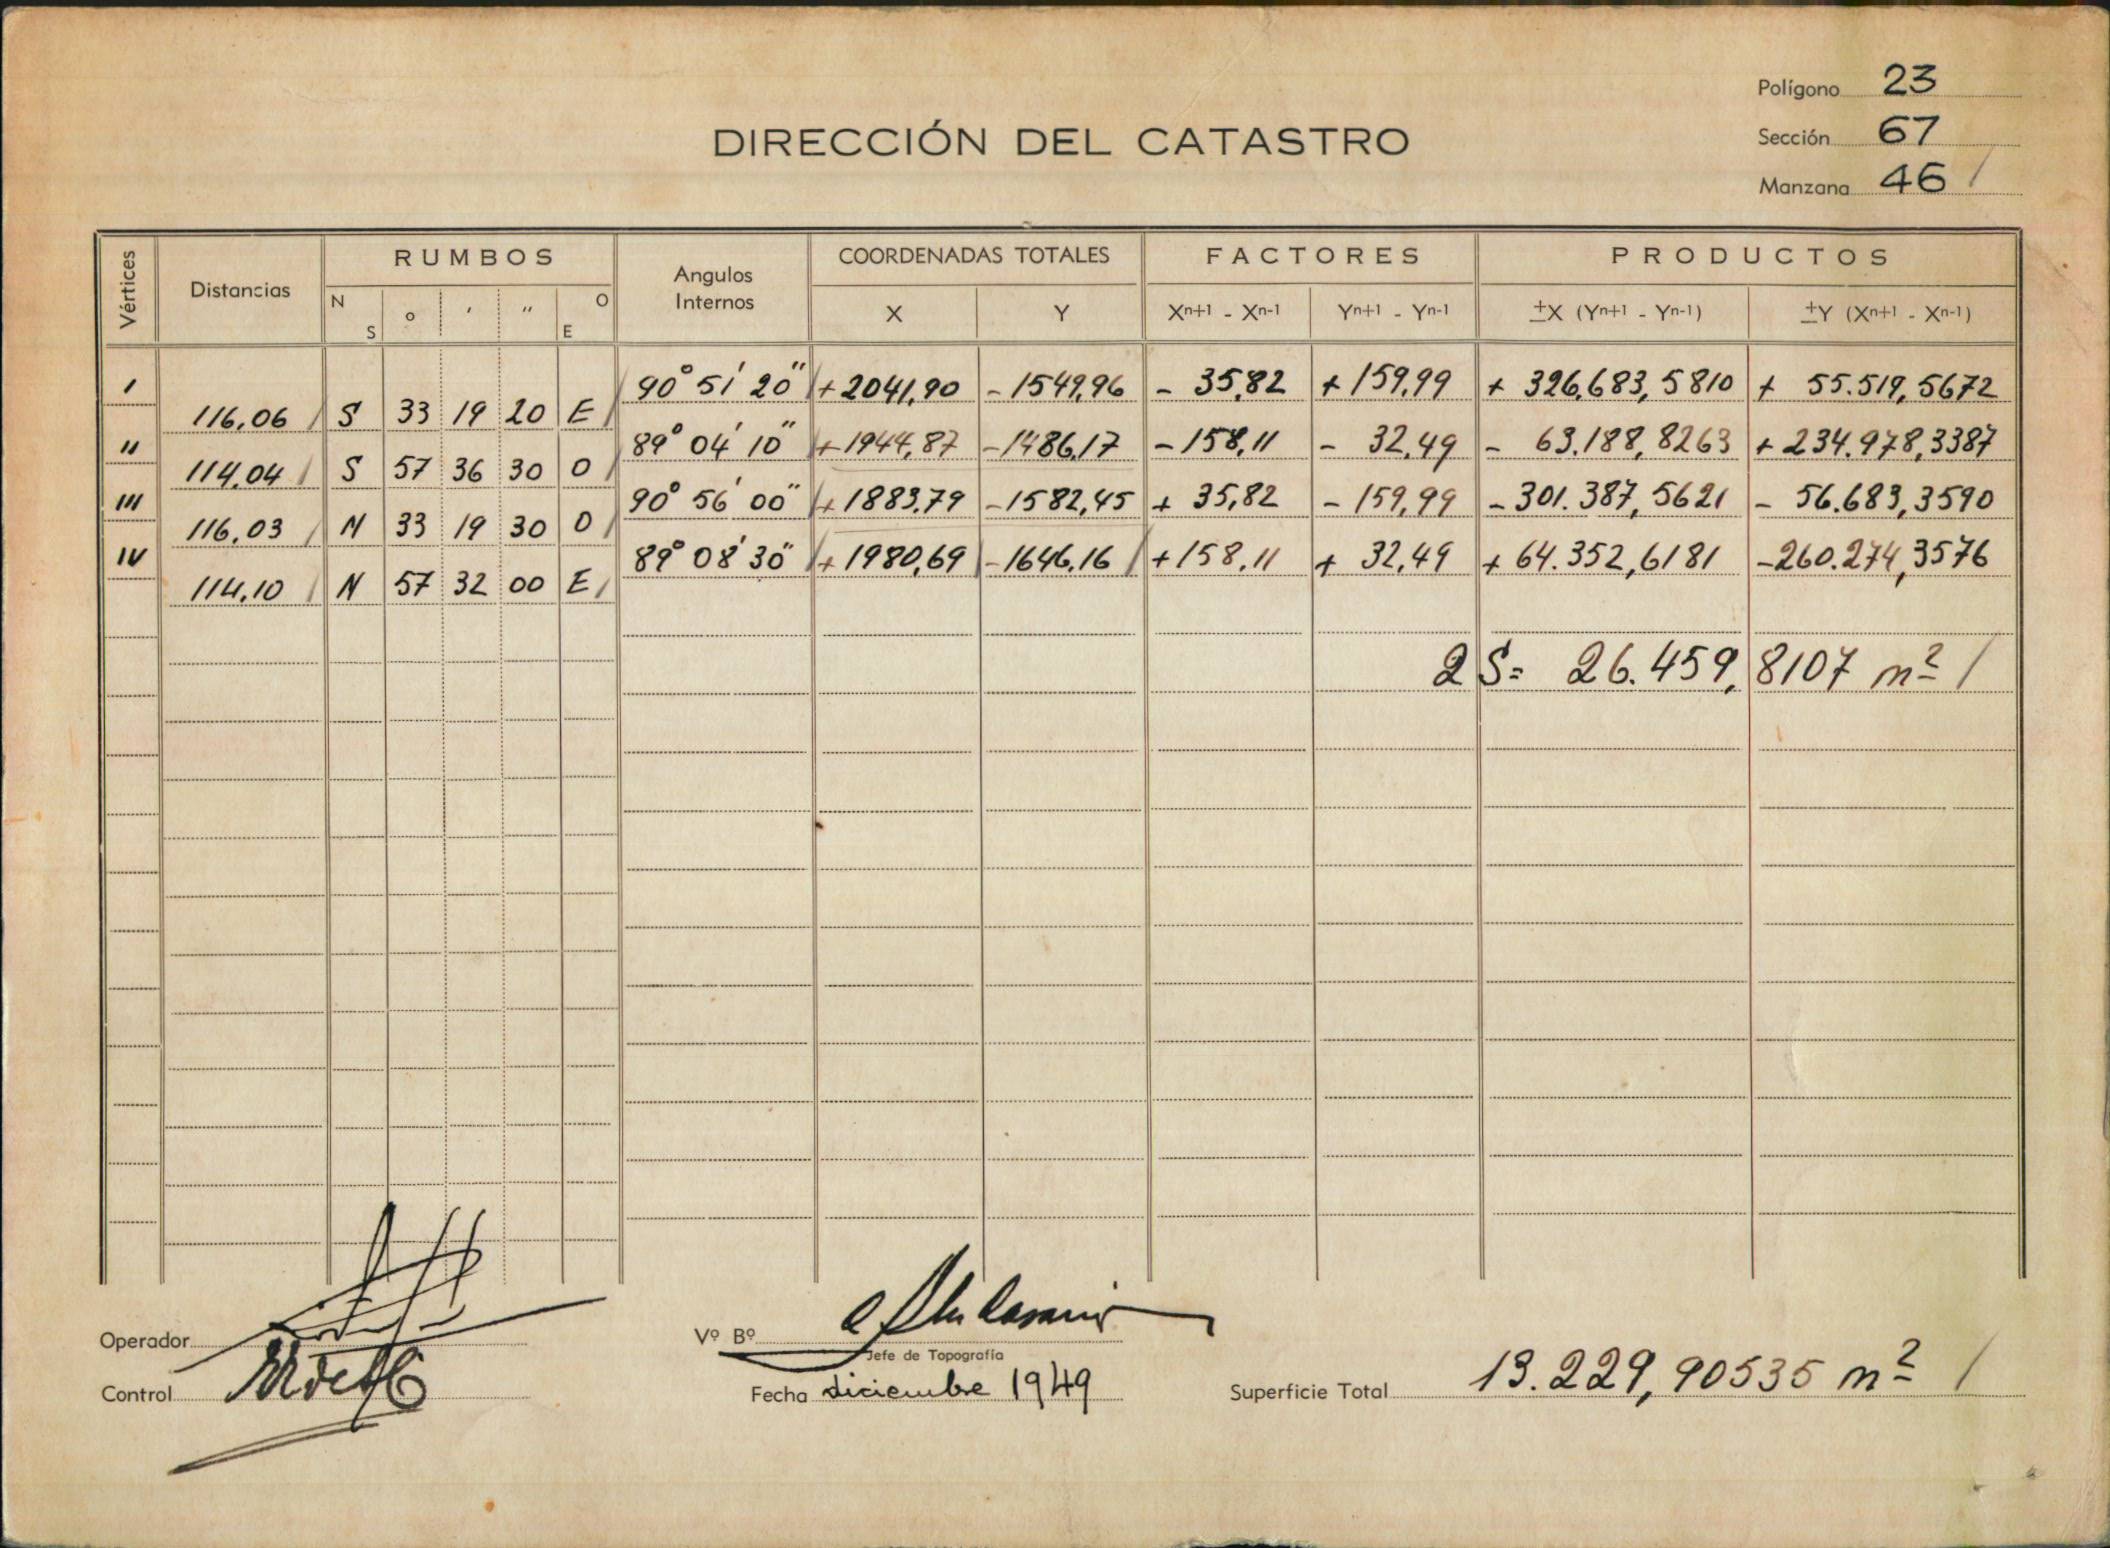 Polígono 23
DIRECCIÓN DEL CATASTRO
Sección 67
Manzana 46 /
Vértices Distancias RUMBOS Angulos Internos COORDENADAS TOTALES FACTORES PRODUCTOS
N S o ' '' O E X Y Xn+1 - Xn-1 Yn+1 - Yn-1 ±X (Yn+1 - Yn-1) ±Y (Xn+1 - Xn-1)
I 90° 51' 20'' / + 2041,90 - 1549,96 - 35,82 + 159,99 + 326.683,5810 + 55.519,5672
116,06 / S 33 19 20 E /
II 89° 04' 10'' + 1944,87 - 1486,17 - 158,11 - 32,49 - 63.188,8263 + 234.978,3387
114,04 / S 57 36 30 O /
III 90° 56' 00'' / + 1883,79 - 1582,45 + 35,82 - 159,99 - 301.387,5621 - 56.683,3590
116,03 / N 33 19 30 O /
IV 89° 08' 30'' / + 1980,69 - 1646,16 / + 158,11 + 32,49 + 64.352,6181 - 260.274,3576
114,10 / N 57 32 00 E /
2 S = 26.459,8107 m² /
Operador
Vº Bº
Jefe de Topografía
Control
Fecha diciembre 1949
Superficie Total 13.229,90535 m² /